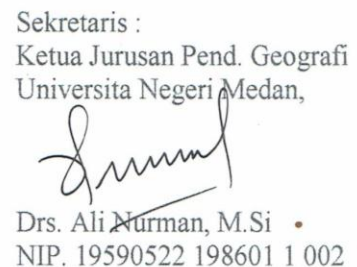 Sekretaris :
Ketua Jurusan Pend. Geografi
Universita Negeri Medan,
Drs. Ali Nurman, M.Si
NIP. 19590522 198601 1 002